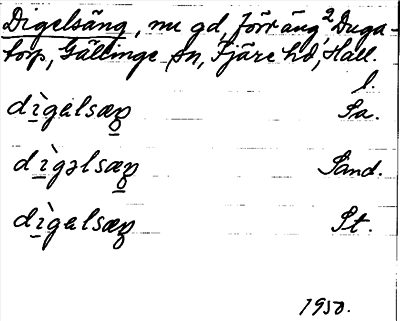 Digelsäng, nu gd, förr äng, Duga-
torp, Gällinge sn, Fjäre hd, Hall.
l.
dìgəlsæŋ Sa.
dìgəlsæŋ Sand.
dìgəlsæŋ St.
1950.